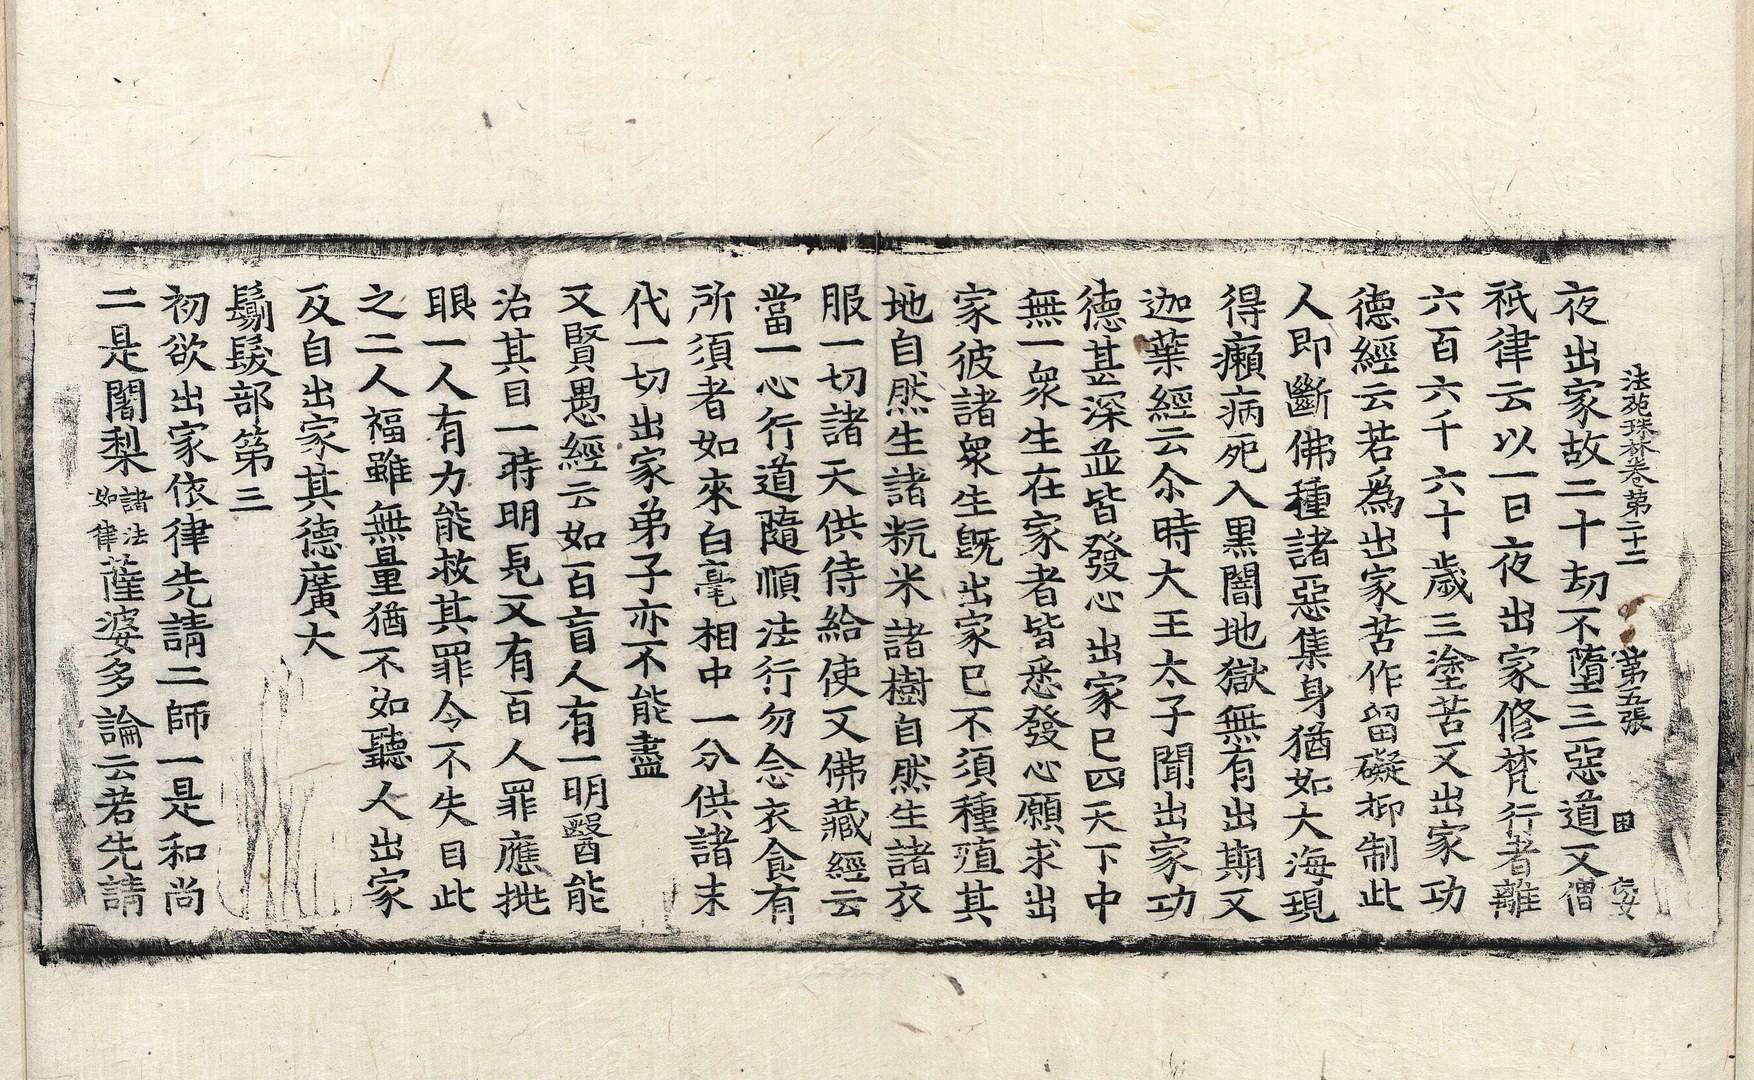 法苑珠林卷第二十二 第五張 田 安
夜出家故二十劫不墮三惡道又僧
祇律云以一日夜出家修梵行者離
六百六千六十歲三塗苦又出家功
德經云若為出家苦作留礙抑制此
人即斷佛種諸惡集身猶如大海現
得癩病死入黑闇地獄無有出期又
迦葉經云尒時大王太子聞出家功
德甚深並皆發心出家已四天下中
無一衆生在家者皆悉發心願求出
家彼諸衆生旣出家已不須種殖其
地自然生諸粇米諸樹自然生諸衣
服一切諸天供侍給使又佛藏經云
當一心行道隨順法行勿念衣食有
所須者如來白毫相中一分供諸末
代一切出家弟子亦不能盡
又賢愚經云如百盲人有一明醫能
治其目一時明見又有百人罪應挑
眼一人有力能救其罪令不失目此
之二人福雖無量猶不如聽人出家
及自出家其德廣大
鬀髮部第三
初欲出家依律先請二師一是和尚
二是闍梨諸法如律薩婆多論云若先請